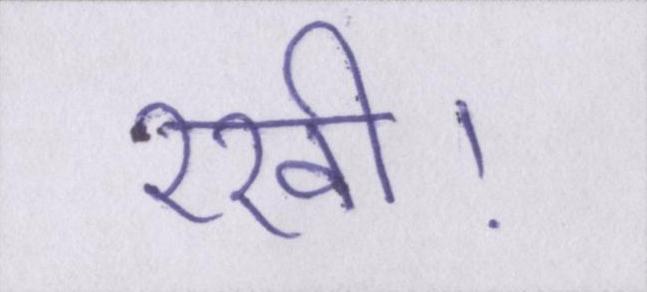 रखी!